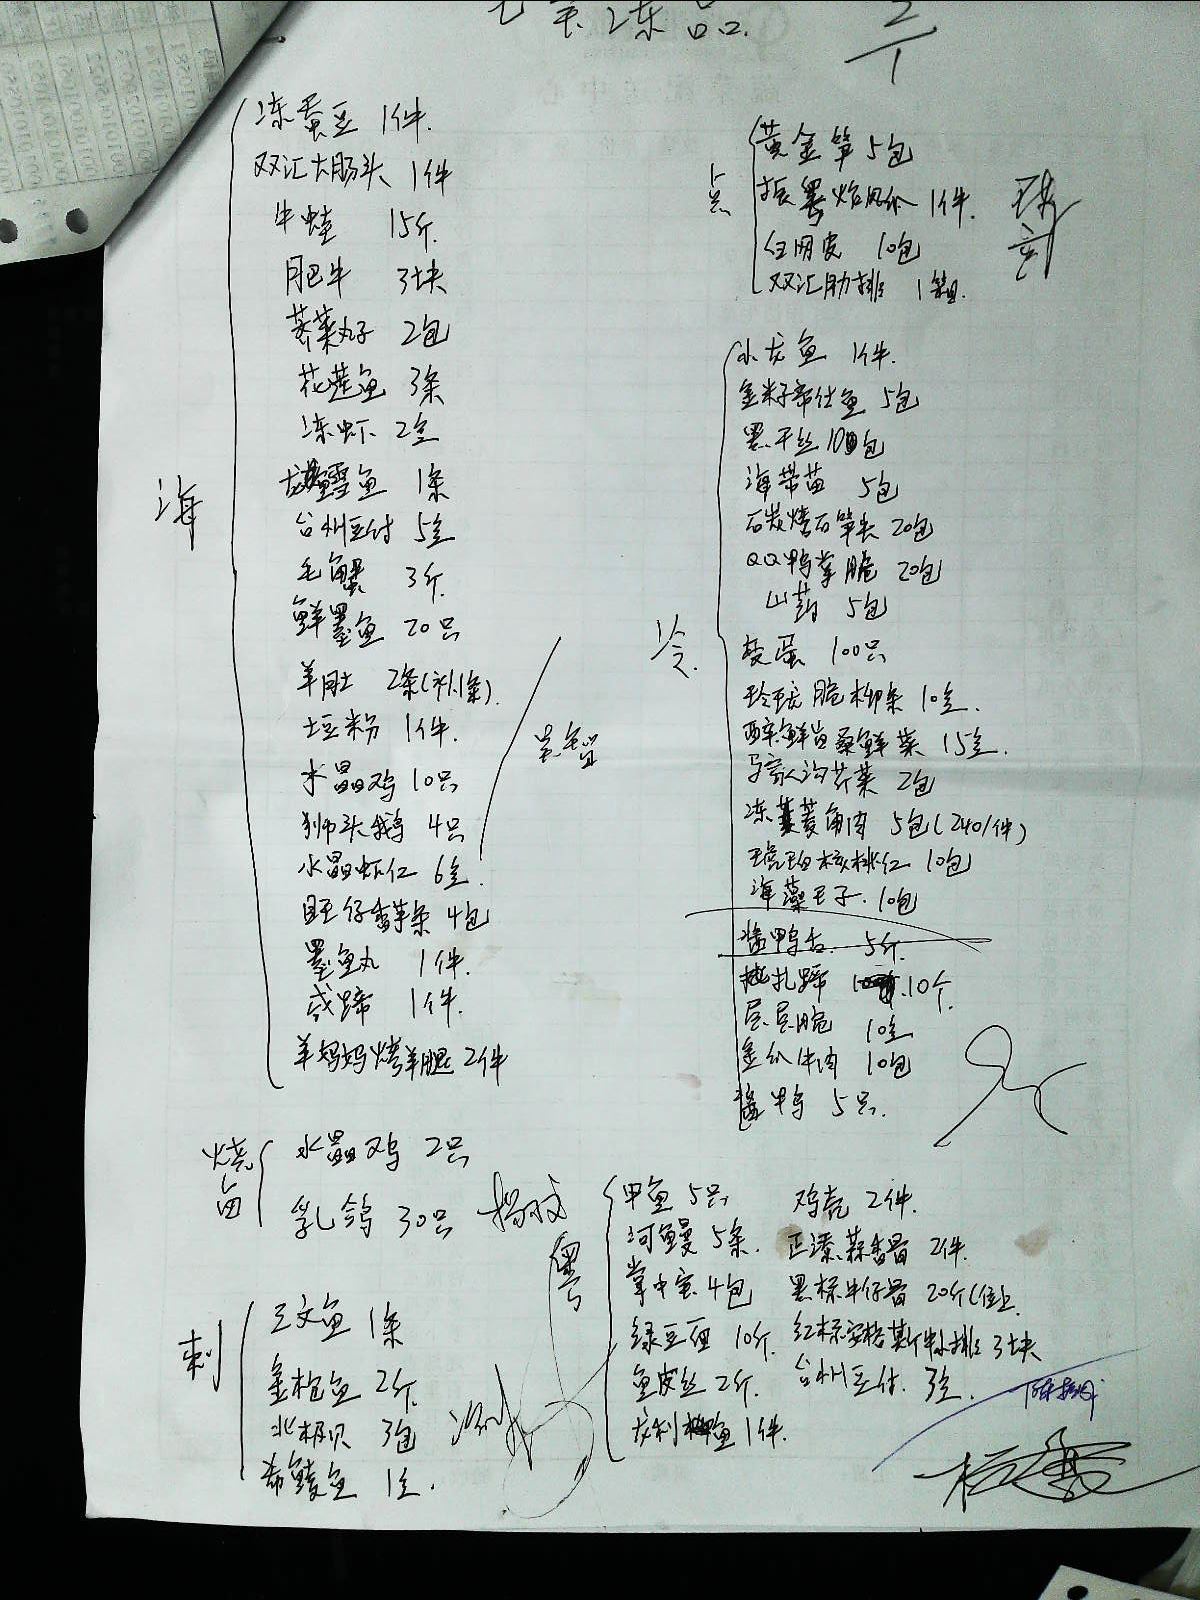 冻品
2/1
海
冻蚕豆 1件.
双汇大肠头 1件
牛蛙 15斤.
肥牛 3块
荠菜丸子 2包
花莲鱼 3条
冻虾 2盒
鳕鱼 1条
台州豆付 5盒
毛蟹 3斤.
鲜墨鱼 20只
羊肚 2条(补1条).
土豆粉 1件.
水晶鸡 10只
狮头鹅 4只
水晶虾仁 6盒.
旺仔香芋条 4包
墨鱼丸 1件.
咸蹄 1件.
羊妈妈烤羊腿 2件
烧卤
水晶鸡 2只
乳鸽 30只
刺
三文鱼 1条
金枪鱼 2斤.
北极贝 3包
希鲮鱼 1盒.
点
黄金笋 5包
1件.
红网皮 10包
双汇肋排 1箱.
冷
小龙鱼 1件.
金籽希仕鱼 5包
黑干丝 10包
海带苗 5包
石炭烤石笋尖 20包
QQ鸭掌脆 20包
山药 5包
皮蛋 100只
玲珑脆柳条 10盒.
醉鲜卤桑鲜菜 15盒.
马家沟芹菜 2包
冻菱角肉 5包(240/件)
琥珀核桃仁 10包
海藻王子. 10包
酱鸭舌. 5斤.
捆扎蹄 10个.
层层脆 10盒
金爪牛肉 10包
酱鸭 5只.
粤
甲鱼 5只 鸡壳 2件.
河鳗 5条. 正溱蒜香骨 2件.
掌中宝 4包 黑标牛仔骨 20斤
绿豆面 10斤. 红标安格莱斯牛小排 3块
鱼皮丝 2斤. 台州豆付. 3盒.
龙利鱼 1件.